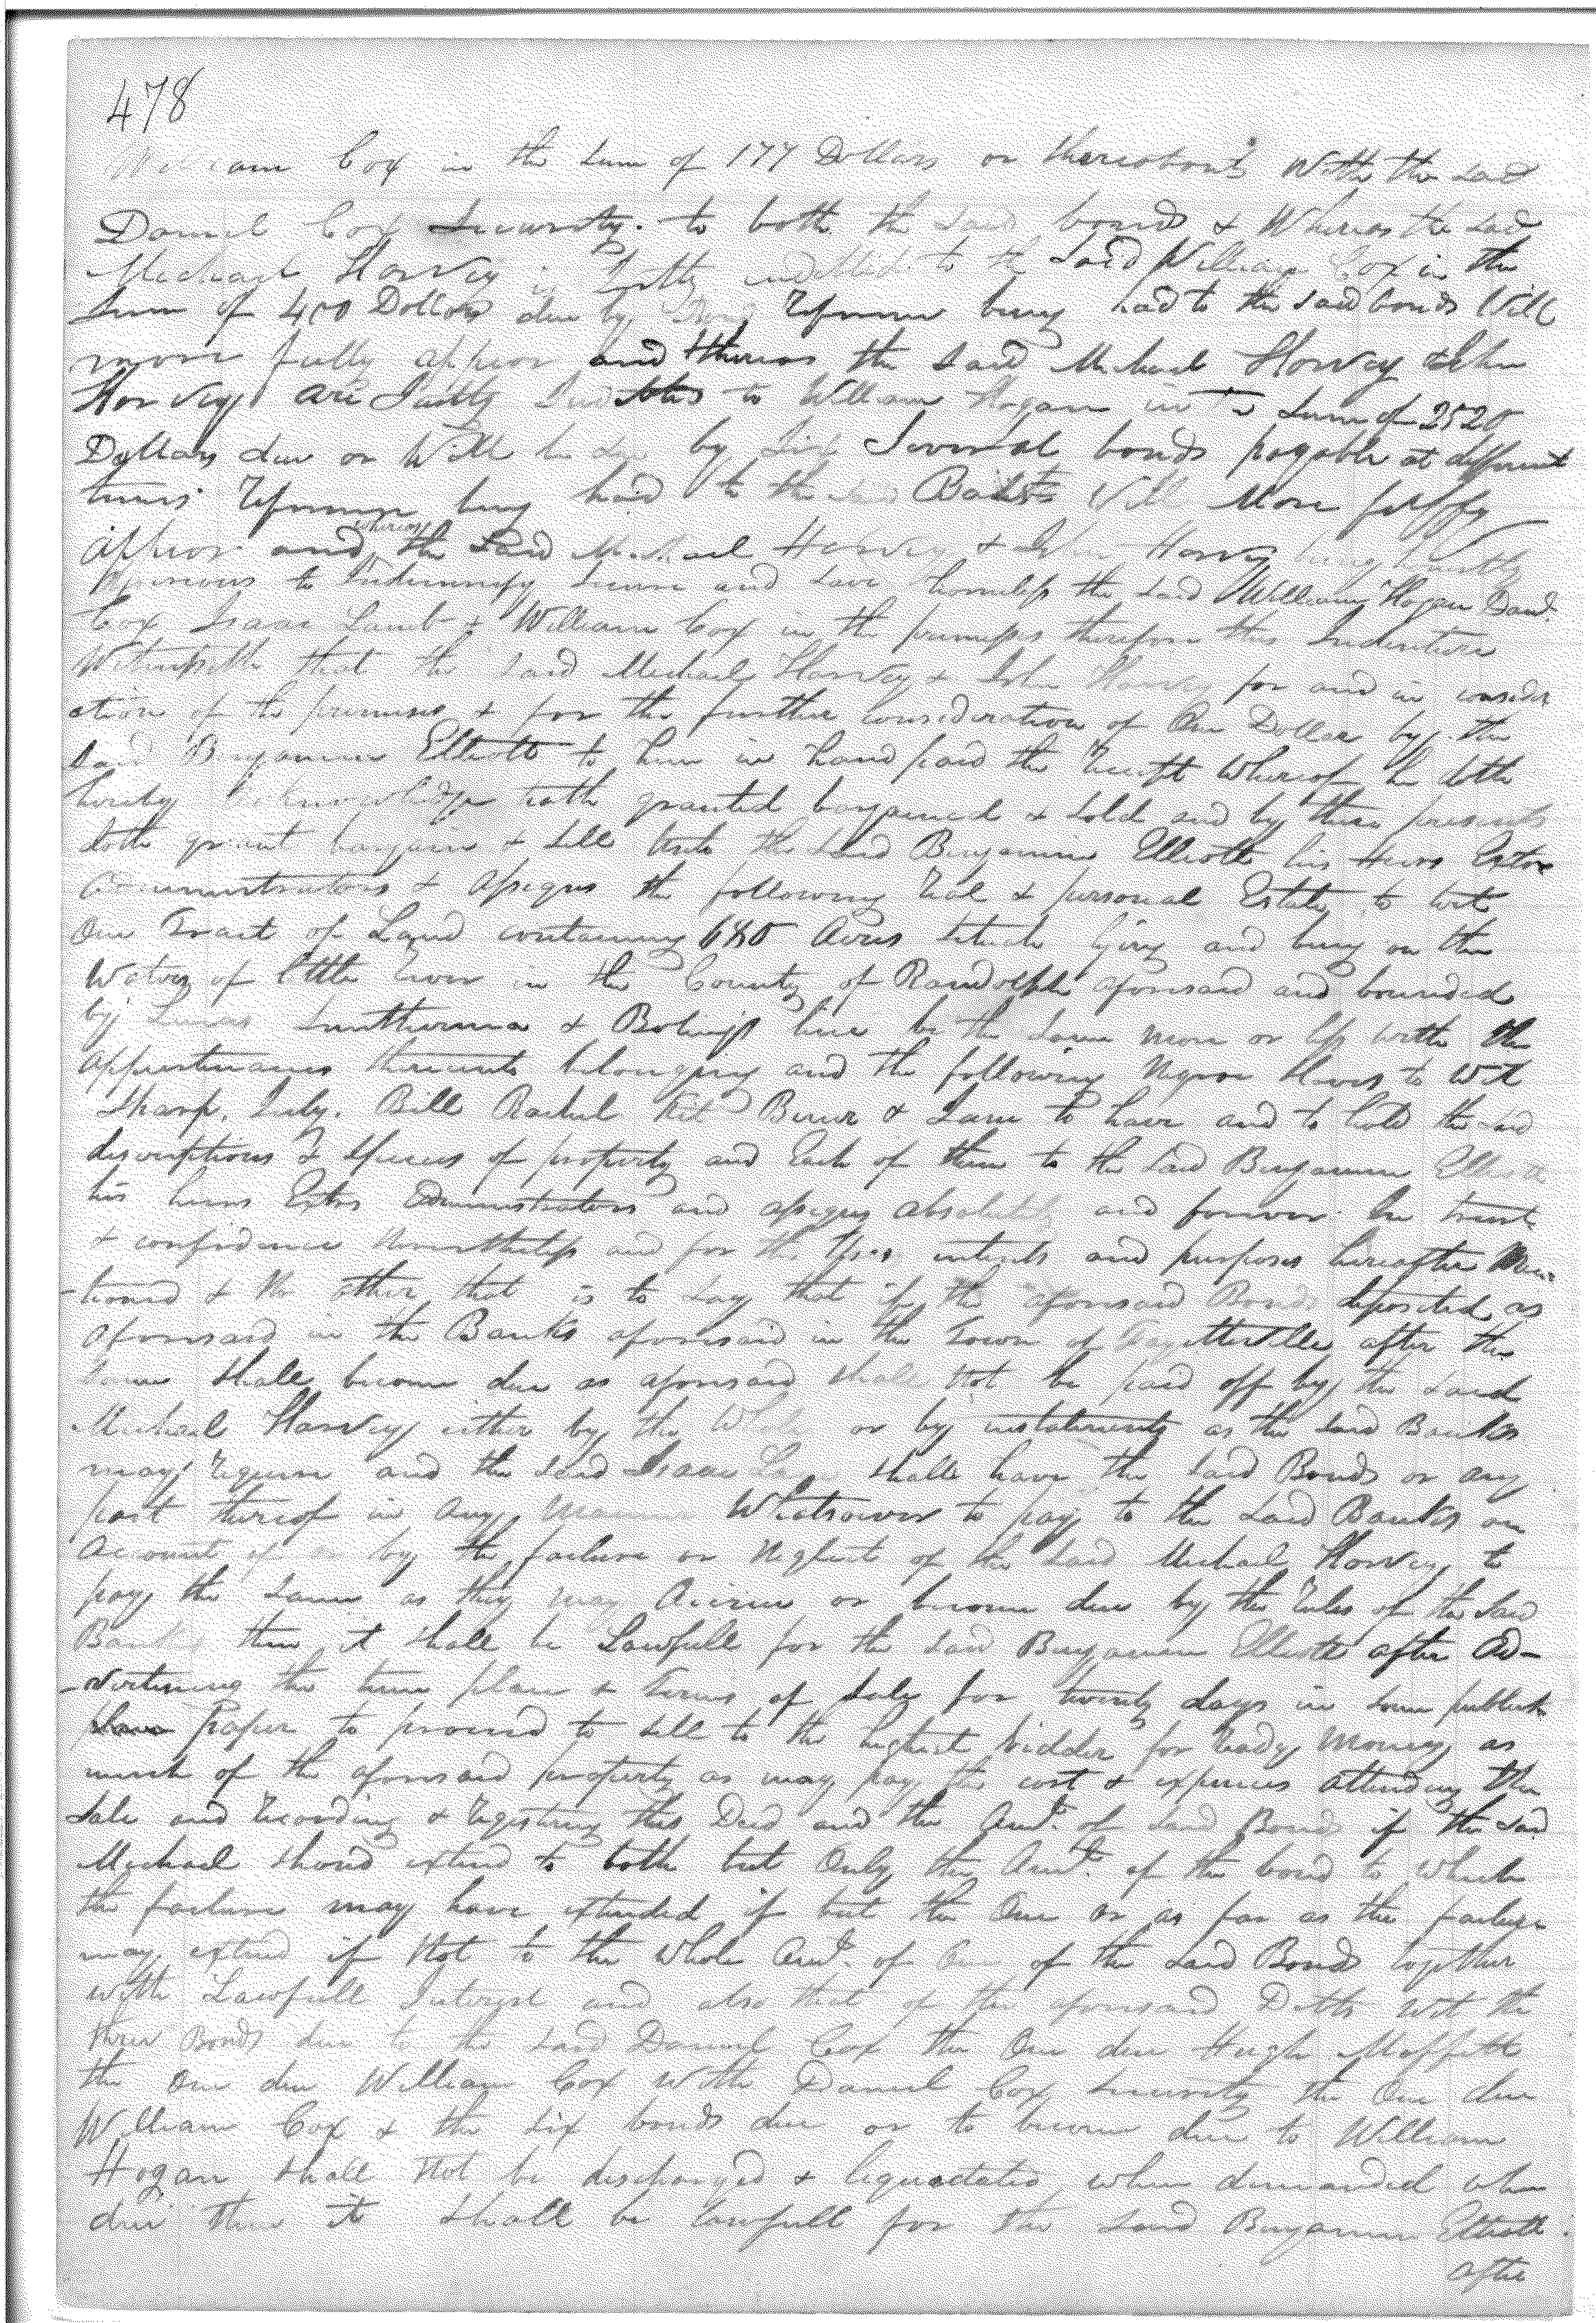 478
William Cox in the Sum of 177 Dollars or thereabouts With the said
Daniel Cox Security. to both the said bonds & Whereas the said
Michael Harvey is Justly indebted to the Said William Cox in the
Sum of 400 Dollars due by Bond Referrence being had to the said bonds Will
more fully appear and Whereas the Said Michael Harvey & John
Harvey are Justly Indebted to William Hogan in the Sum of 2520
Dollars due or Will be due by Six Several bonds payable at different
times Referrence being had to the said Bonds Will More fully
appear and whereas the Said Michael Harvey & John Harvey being honestly
desireous to Indemnify Secure and Save harmless the Said William Hogan Danl.
Cox Isaac Lamb & William Cox in the premises therefore this Indenture
Witnesseth that the Said Michael Harvey & John Harvey for and in consider
ation of the premises & for the further consideration of One Dollar by the
Said Benjamin Elliott to him in hand paid the Receipt Whereof he doth
hereby acknowledge hath granted bargained & Sold and by these presents
doth grant bargain & Sell Unto the Said Benjamin Elliott his Heirs Extors
Administrators & Assigns the following Real & personal Estate to wit
One Tract of Land containing 680 Acres Situate lying and being on the
Waters of little River in the County of Randolph aforesaid and bounded
by Lucas & Boling's line be the Same more or less with the
appurtenances thereunto belonging and the following Negroe Slaves to wit
Sharp. July. Bill Rachel Kit & Sam to have and to hold the said
descriptions & Species of property and Each of them to the Said Benjamin Elliott
his heirs Extors Administrators and assigns absolutely and forever. In trust
& confidence Nevertheless and for the Uses intents and purposes hereafter Men-
-tioned & No other that is to Say that if the aforesaid Bonds deposited as
aforesaid in the Banks aforesaid in the Town of Fayetteville after the
Same Shall become due as aforesaid Shall Not be paid off by the Said
Michael Harvey either by the Whole or by instalments as the Said Banks
may Require and the Said Isaac Lamb Shall have the Said Bonds or any
part thereof in any Manner Whatsoever to pay to the Said Banks on
Account of or by the failure or Neglect of the Said Michael Harvey to
pay the Same as they may Accrue or become due by the Rules of the Said
Banks then it Shall be Lawfull for the Said Benjamin Elliott after Ad-
-vertising the time place & Terms of Sale for twenty days in Some publick
Paper to proceed to Sell to the highest bidder for Ready Money as
much of the aforesaid property as may pay the cost & expences attending the
Sale and Recording & Registering this Deed and the Amt. of Said Bonds if the Said
Michael Should extend to both but Only the Amt. of the bond to which
the failure may have extended if but the One or as far as the failure
may extend if Not to the Whole Amt. of One of the Said Bonds together
with Lawfull Interest and also that if the aforesaid Debts wit the
three Bonds due to the Said Daniel Cox the One due Hugh Moffitt
the One due William Cox With Daniel Cox Security the One due
William Cox & the Six bonds due or to become due to William
Hogan Shall Not be discharged & liquedated when demanded when
due then it Shall be lawfull for the Said Benjamin Elliott.
after